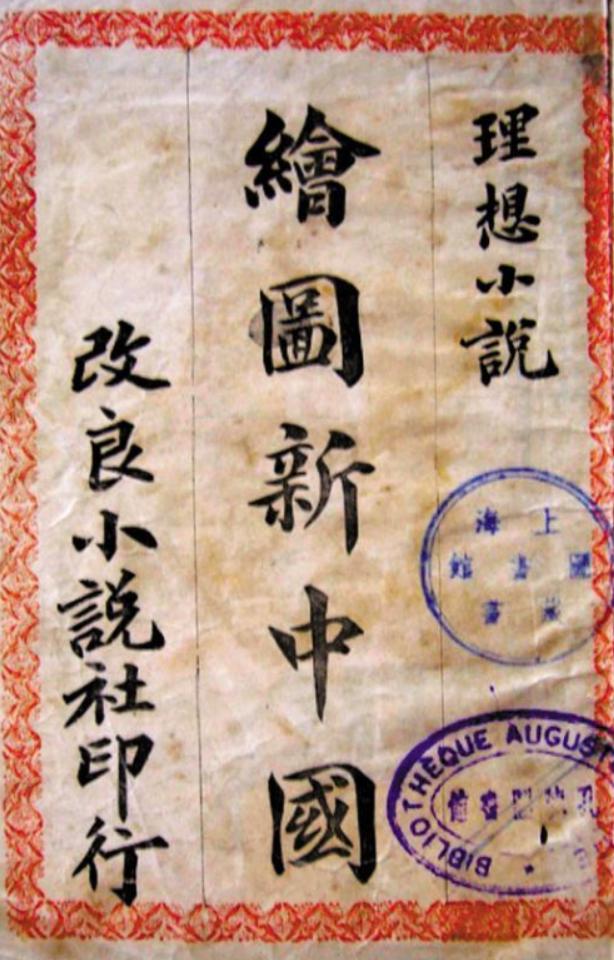 理想小說
繪圖新中國
改良小說社印行
上海
圖書館
藏書
BIBLIOTHÈQUE AUGUST
圖書館